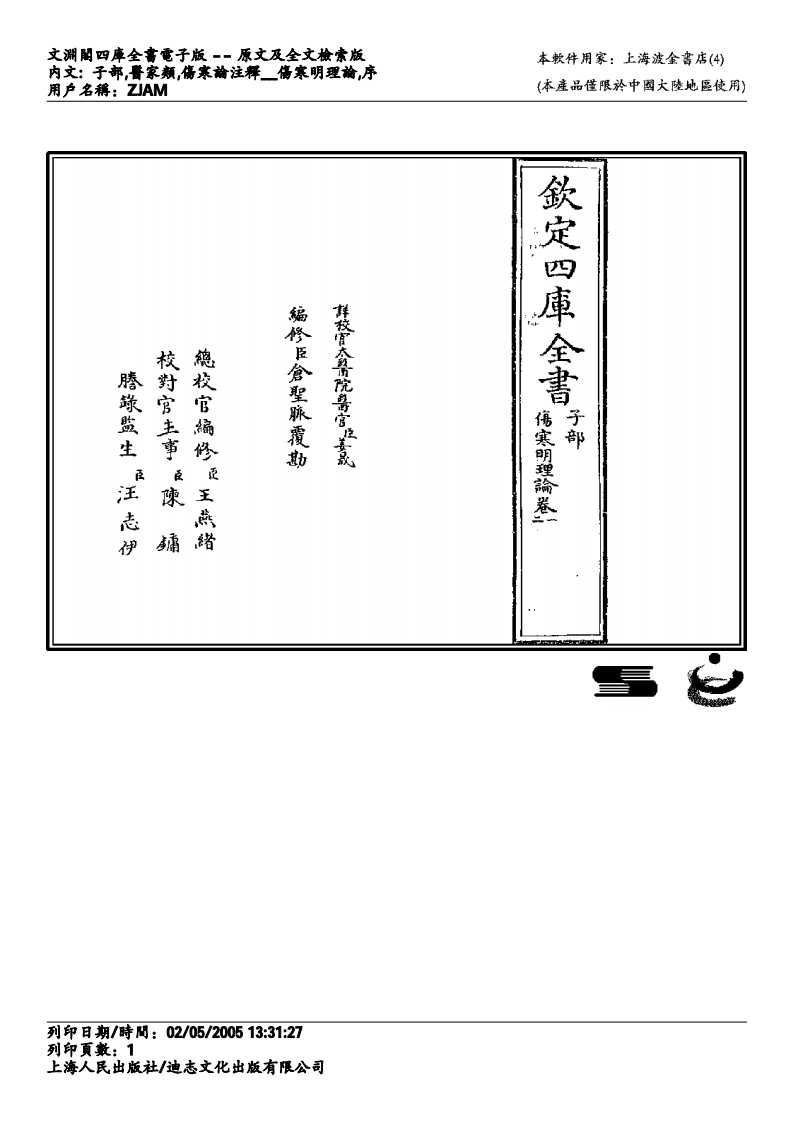 文淵閣四庫全書電子版 -- 原文及全文檢索版
內文: 子部,醫家類,傷寒論注釋__傷寒明理論,序
用戶名稱: ZJAM
本軟件用家: 上海波金書店(4)
(本產品僅限於中國大陸地區使用)
欽定四庫全書
子部
傷寒明理論卷一二
詳校官太醫院醫官臣姜晟
編修臣倉聖脈覆勘
總校官編修臣王燕緒
校對官主事臣陳鏞
謄錄監生臣汪志伊
列印日期/時間: 02/05/2005 13:31:27
列印頁數: 1
上海人民出版社/迪志文化出版有限公司